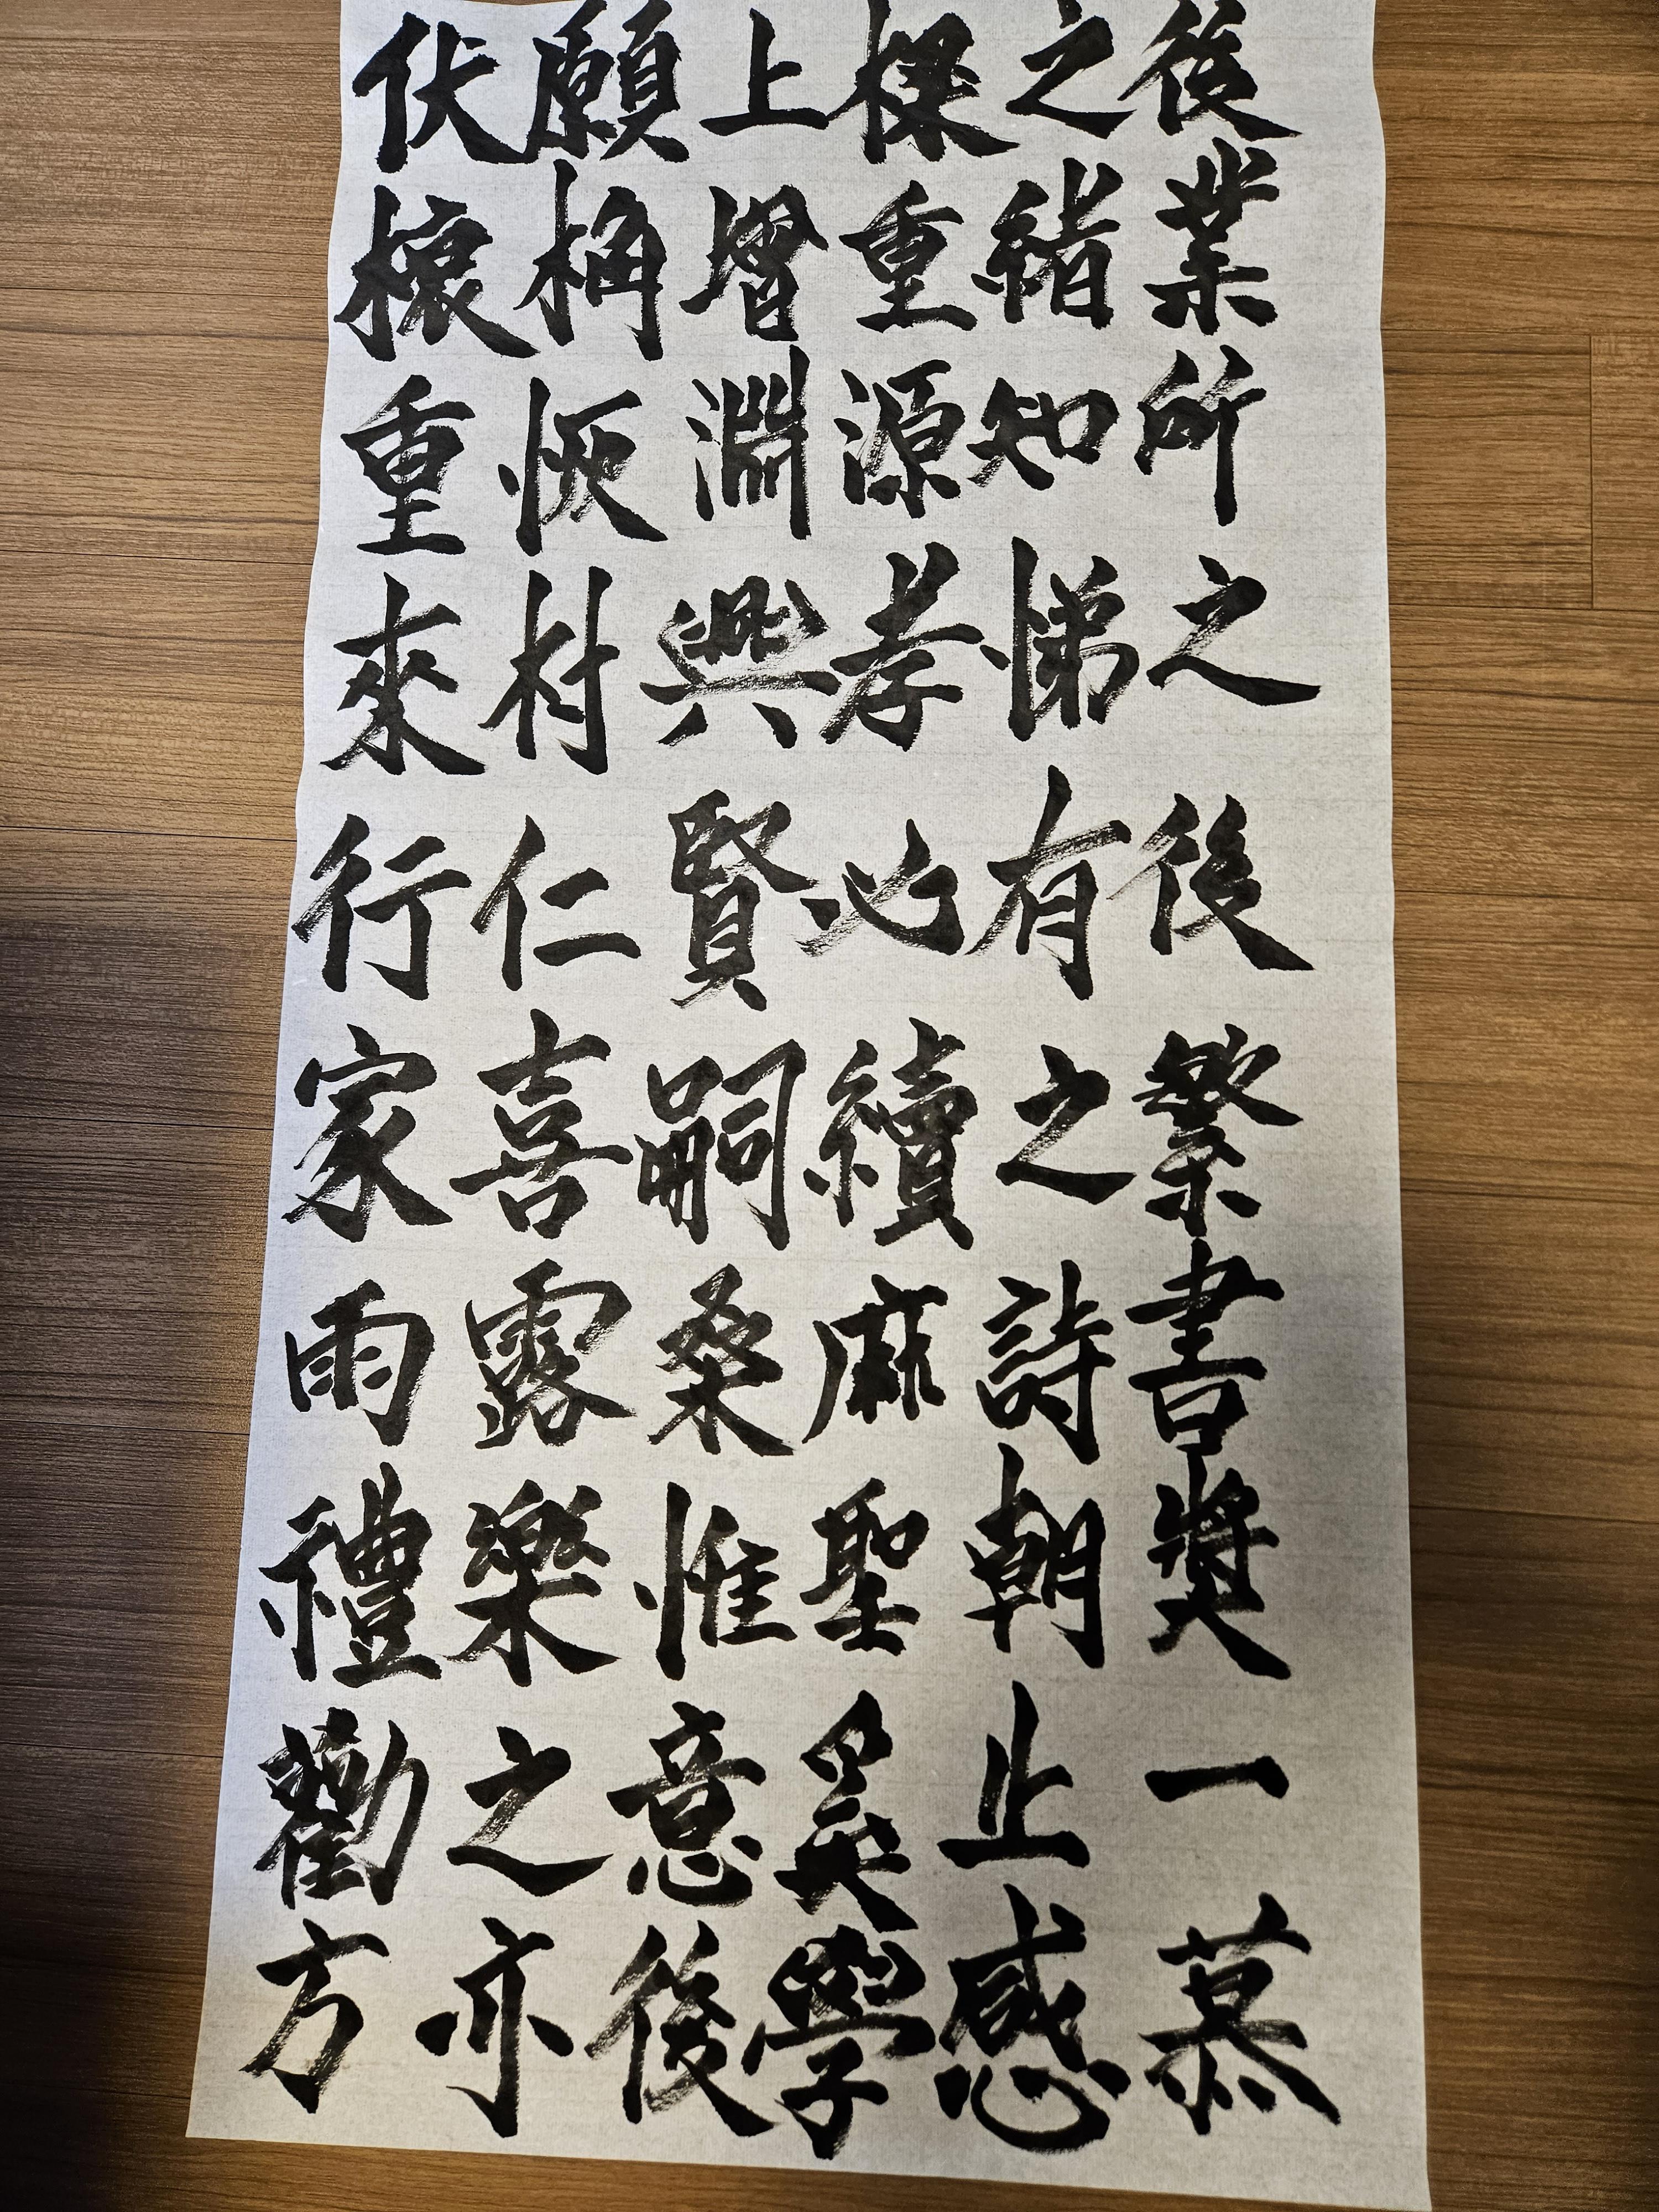 伏願上樑之後
榱桷增重緖業
重恢淵源知所
來村興孝悌之
行仁賢必有後
家喜嗣續之繁
雨露桑麻詩書
禮樂惟聖朝奬
勸之意奚止一
方亦後學感慕